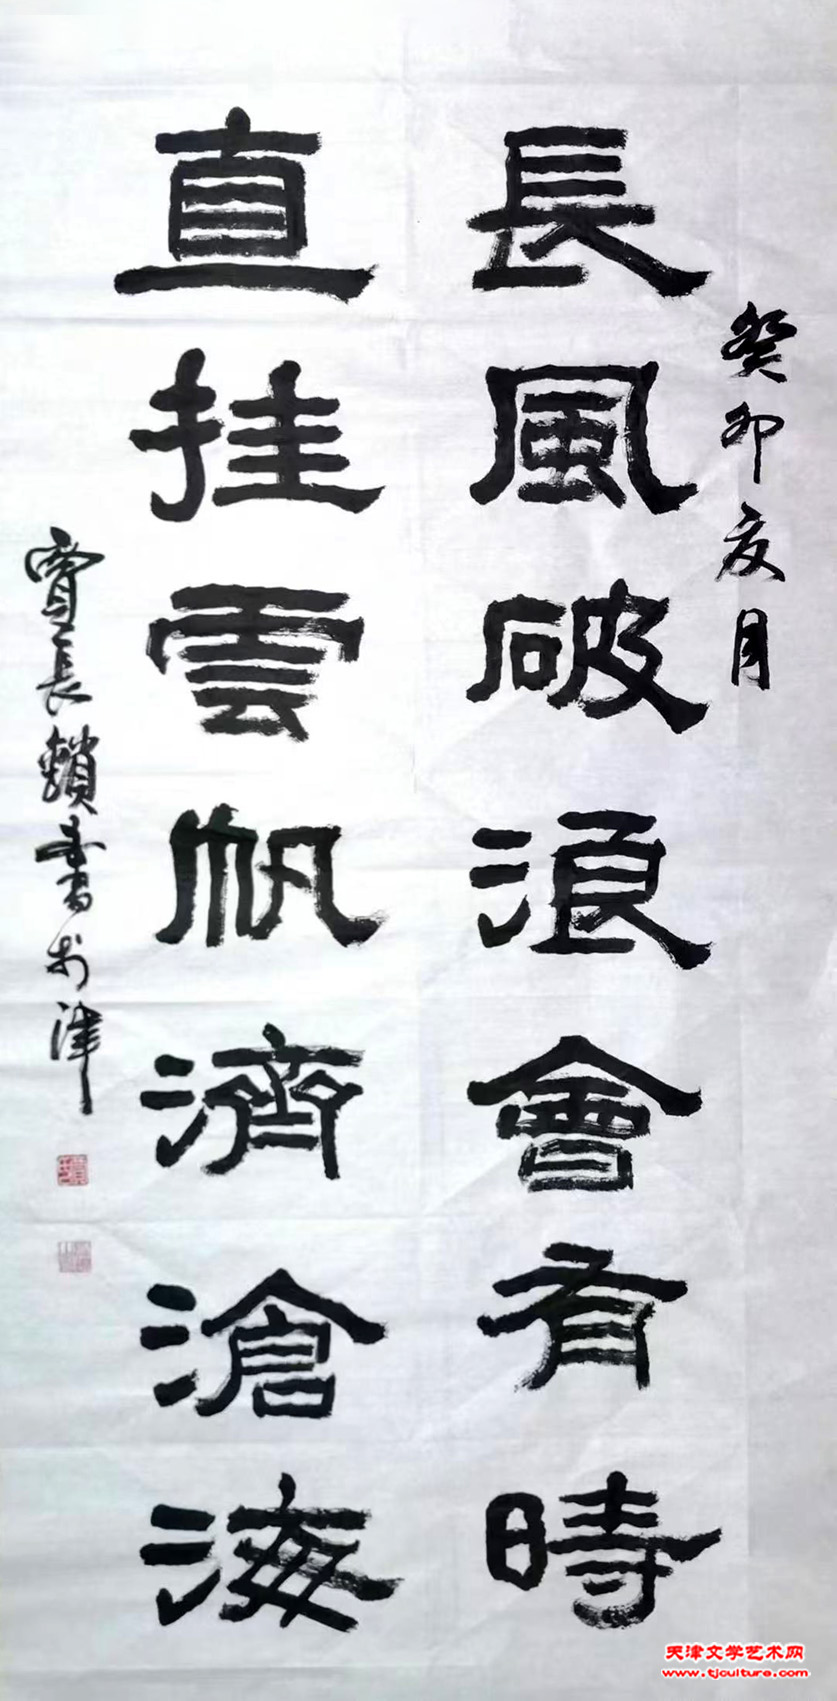 癸卯亥月
長風破浪會有時
直挂雲帆濟滄海
賈長鎖書於津
天津文学艺术网
www.tjculture.com